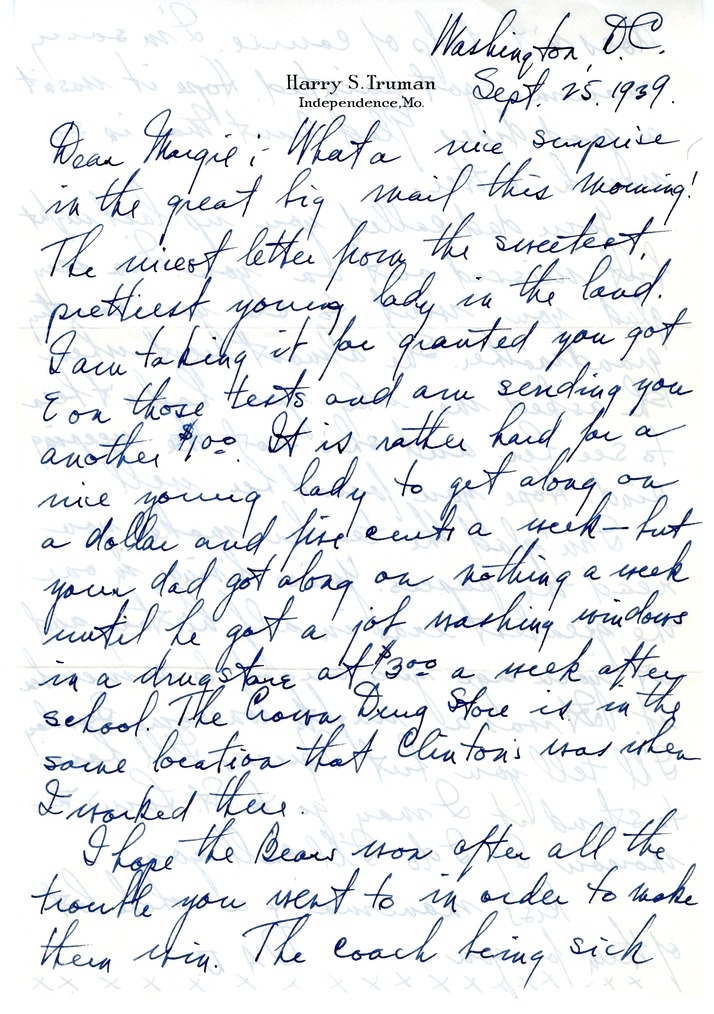 Washington, D.C.
Harry S. Truman
Independence, Mo.
Sept. 25, 1939.
Dear Margie;- What a nice surprise
in the great big mail this morning!
The nicest letter from the sweetest,
prettiest young lady in the land.
I am taking it for granted you got
E on those tests and am sending you
another $1.00. It is rather hard for a
nice young lady to get along on
a dollar and five cents a week—but
your dad got along on nothing a week
until he got a job washing windows
in a drugstore at $3.00 a week after
school. The Crown Drug Store is in the
same location that Clinton's was when
I worked there.
I hope the Bears won after all the
trouble you went to in order to make
them win. The coach being sick